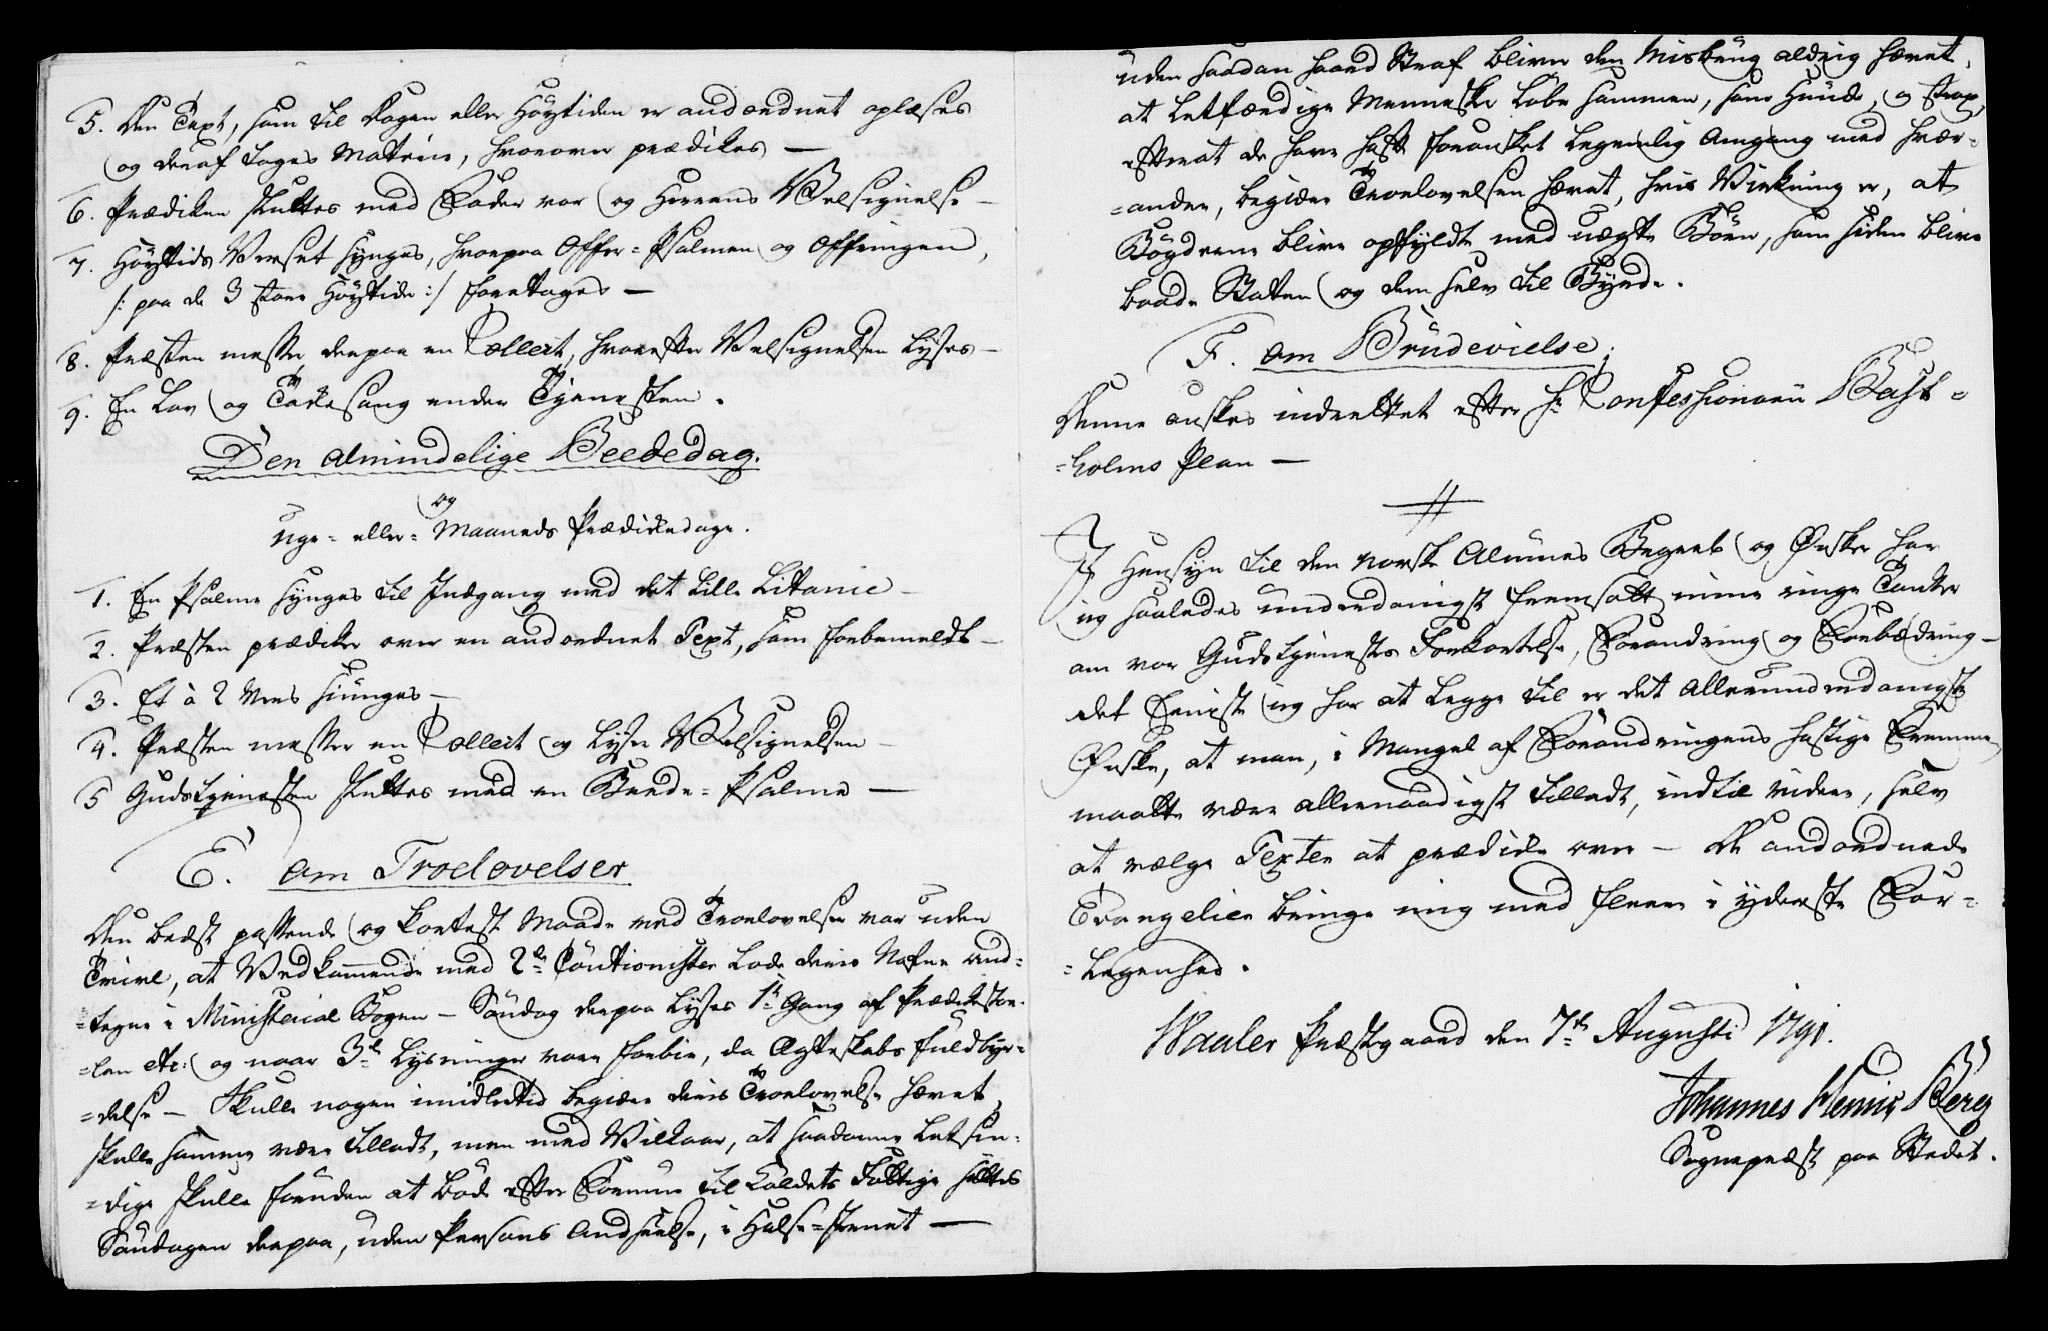 5. Den Text, som til Dagen eller Høytiden er anordnet oplæses
og deraf tages Materie, hvorover prædikes —
6. Prædiken sluttes med Fader vor og Herrens Velsignelse —
7. Høytids Verset synges, hvorpaa Offer-Psalmen og Offringen,
/: paa de 3 store Høytider :/ foretages —
8. Præsten messer derpaa en Collect, hvorefter Velsignelsen lyses —
9. En Lov og Takkesang ender Tjenesten.
Den almindelige Beededag.
og
Uge- eller- Maaneds Prædikedage.
1. En Psalme synges til Indgang med det lille Litanie —
2. Præsten prædiker over en anordnet Text, som forbemeldt —
3. Et à 2 Vers siunges —
4. Præsten messer en Collect og lyser Velsignelsen —
5 Gudstjenesten sluttes med en Beede-Psalme —
E. om Troelovelser
Den bedst passende og kortest Maade ved Troelovelser var uden
Tvivl, at Vedkommende med 2de Cautionister lode deres Nafne and-
-tegne i Ministerial Bogen — Søndag derpaa lyses 1te Gang af Prædikesto-
-len etc: og naar 3de Lysninger vare forbie, da Ægteskabs fuldbyr-
-delse — Skulle nogen imidlertid begiære deris Troelovelse hævet,
skulle samme være tilladt, men med Vilkaar, at saadanne letsin-
-dige skulle foruden at bøde efter Formue til Kaldets Fattige sættes
Søndagen derpaa, uden Persons Andseelse, i Halse-Jernet —
uden saadan haard Straf bliver den Misbrug aldrig hævet,
at letfærdige Menneske løbe sammen, som Hunde, og strax,
efterat de have hafft forønsket legemlig Omgang med hver-
-andre, begiære Troelovelsen hævet, hvis Virkning er, at
Bøgderne blive opfyldte med uægte Børn, som siden blive
baade Staten og dem selv til Byrde.
F. om Brudevielse;
Denne ønskes indrettet efter Hr Confessionarii Bast-
-holms Plan —
I Hensyn til den norske Almues Begreb og Ønsker har
jeg saaledes underdanigst fremsatt mine ringe Tanker
om vor Gudstjenestes Forkortelse, Forandring og Forbedring —
det Eeniste jeg har at legge til er det allerunderdanigste
Ønske, at man, i Mangel af Forandringens hastige Fremme,
maatte være allernaadigst tilladt, indtil videre, selv
at vælge Texter at prædike over — De andordnede
Evangelier bringe mig med flere i yderste For-
-legenhed.
Waaler Præstegaard den 7de Augusti 1791.
Johannes Henrik Berg
Sognepræst paa Stedet.